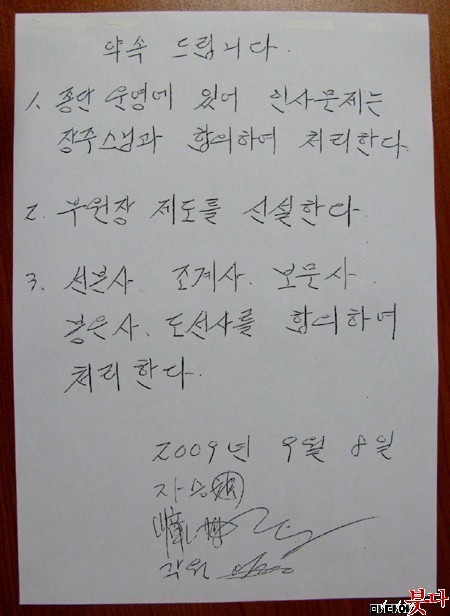 약속 드립니다.
1. 종단 운영에 있어 인사문제는
장주스님과 합의하여 처리한다
2. 부원장 제도를 신설한다
3. 선본사. 조계사. 보문사.
봉은사. 도선사를 합의하여
처리한다.
2009년 9월 8일
자승
각원
붓다